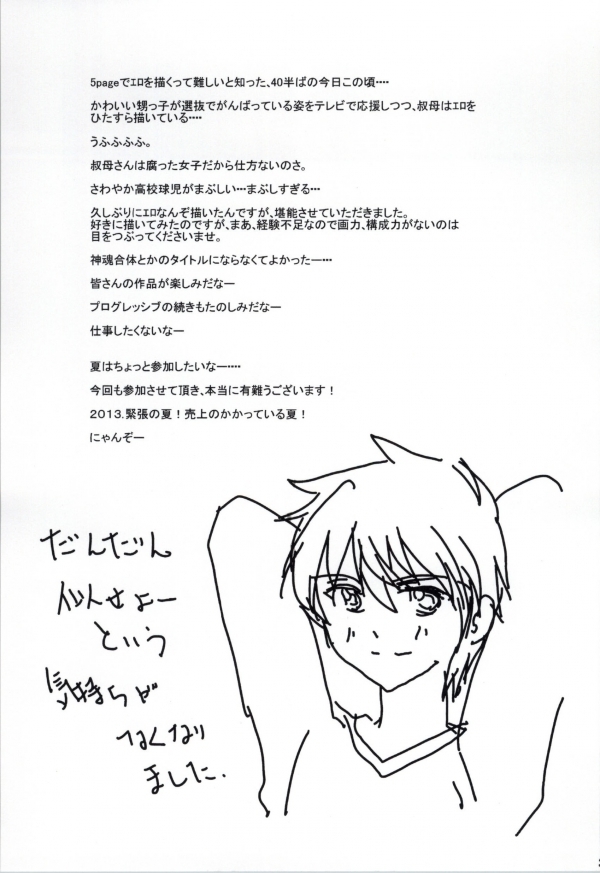 5pageでｴﾛを描くって難しいと知った、40半ばの今日この頃‥‥
かわいい甥っ子が選抜でがんばっている姿をテレビで応援しつつ、叔母はｴﾛを
ひたすら描いている‥‥
うふふふふ。
叔母さんは腐った女子だから仕方ないのさ。
さわやか高校球児がまぶしい…まぶしすぎる…
久しぶりにｴﾛなんぞ描いたんですが、堪能させていただきました。
好きに描いてみたのですが、まあ、経験不足なので画力、構成力がないのは
目をつぶってくださいませ。
神魂合体とかのタイトルにならなくてよかったー…
皆さんの作品が楽しみだなー
プログレッシブの続きもたのしみだなー
仕事したくないなー
夏はちょっと参加したいなー‥‥
今回も参加させて頂き、本当に有難うございます！
２０１３.緊張の夏！売上のかかっている夏！
にゃんぞー
だんだん
似せよー
という
気持ちが
なくなり
ました.